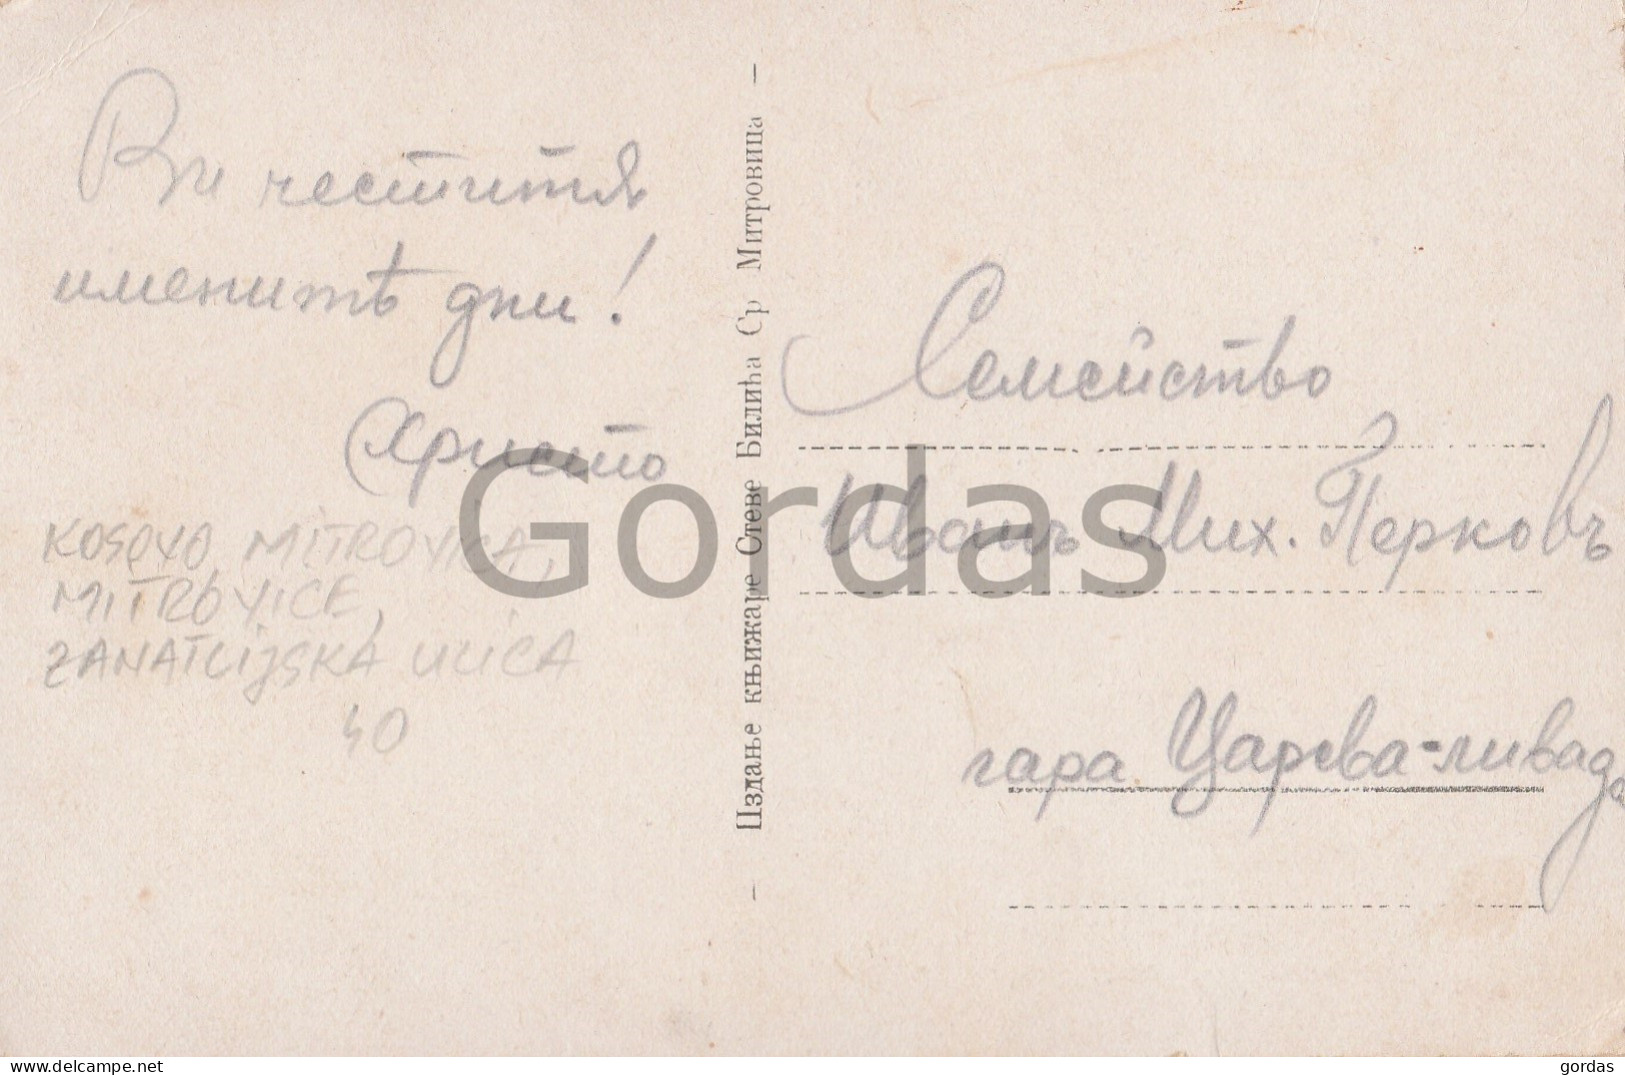 Ви честитя
именитѣ дни!
Христо
KOSOVO MITROVICA,
MITROVICE,
ZANATLIJSKA ULICA
40
– Издање књижаре Стеве Билића Ср Митровица –
Семейство
Иванъ Мих. Перковъ
гара Царева-ливада
Gordas
www.delcampe.net
gordas